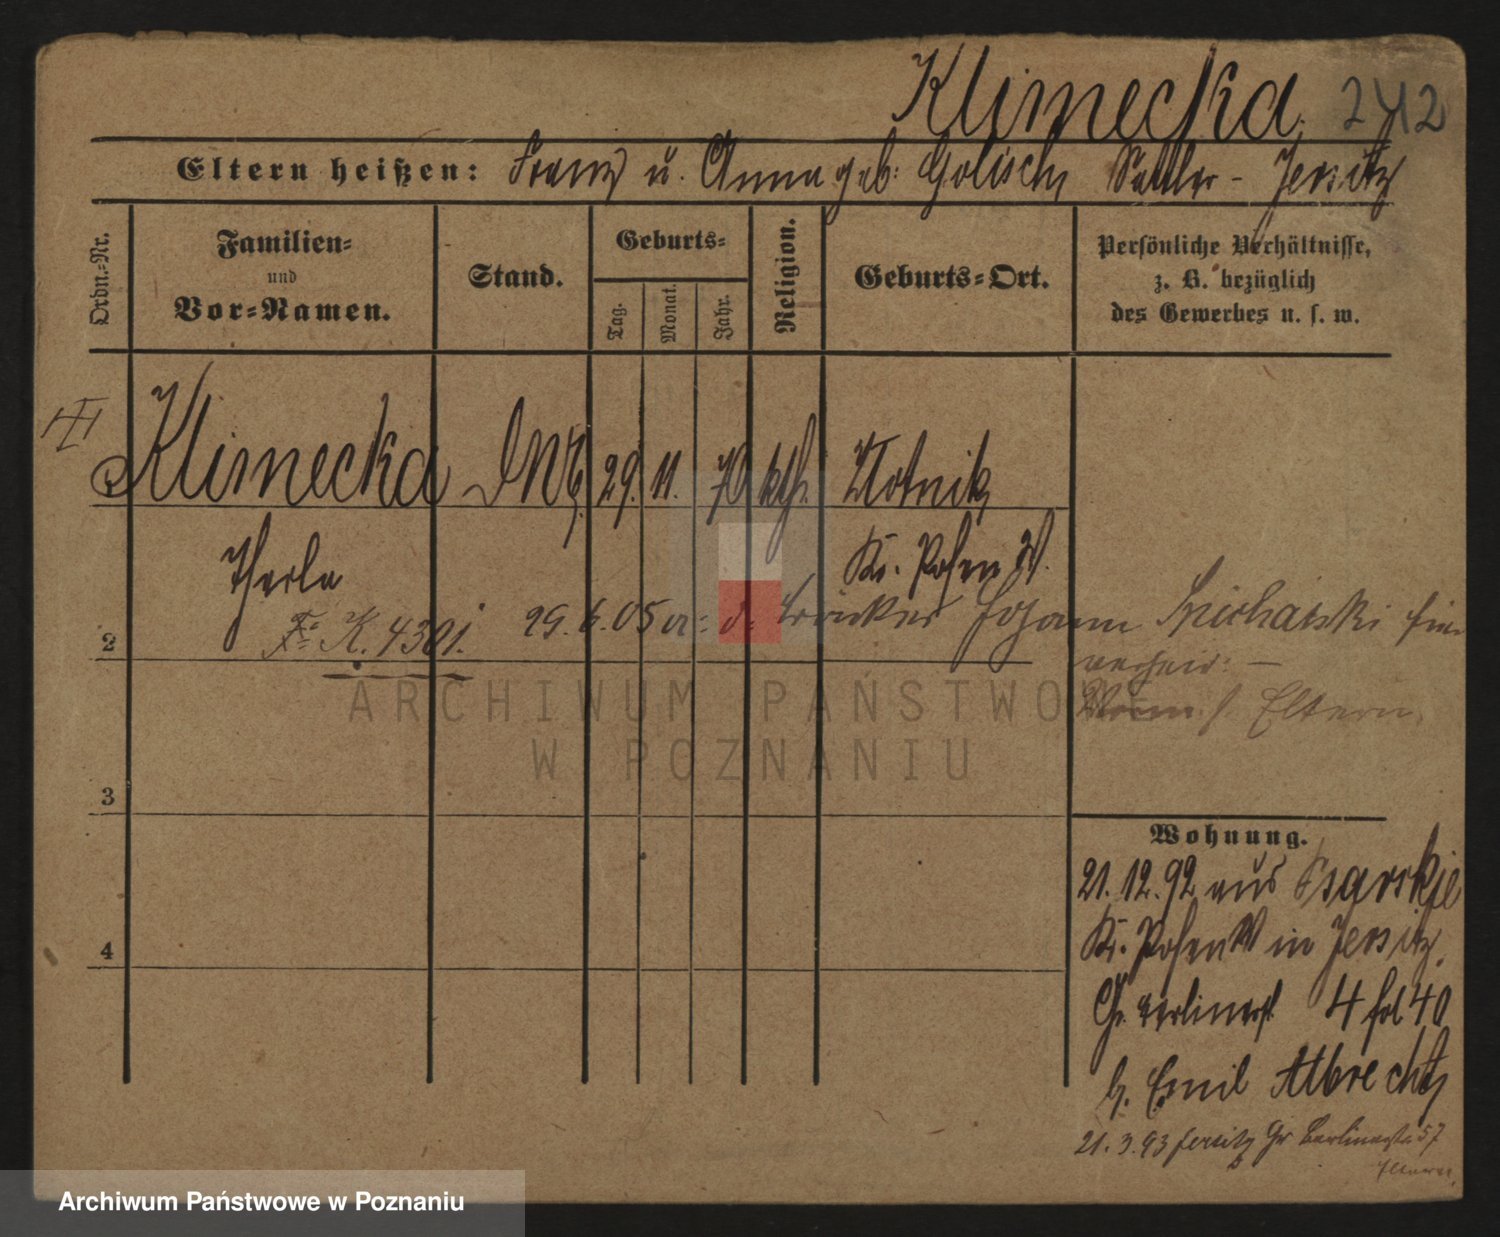 Klimecka 242
Eltern heißen: Franz u. Anna geb: Golisch Sattler - Jersitz
Ordn.-Nr.
Familien=
und
Vor=Namen.
Stand.
Geburts=
Tag.
Monat.
Jahr.
Religion.
Geburts=Ort.
Persönliche Verhältnisse,
z. B. bezüglich
des Gewerbes u. s. w.
Klimecka 29. 11. 70 kth. Zlotnik
Thecla Kr. Posen W.
K. 4301. 29.6.05 Johann
2 verheir: -
Eltern.
ARCHIWUM PAŃSTWOW
W POZNANIU
3
Wohnung.
21.12.92 aus
Kr. Posen W in Jersitz,
Gr. Berlinerst 4 fol 40
b. Emil Albrecht
4
21.3.93 Jersitz Gr Berlinerstr 57
Eltern.
Archiwum Państwowe w Poznaniu